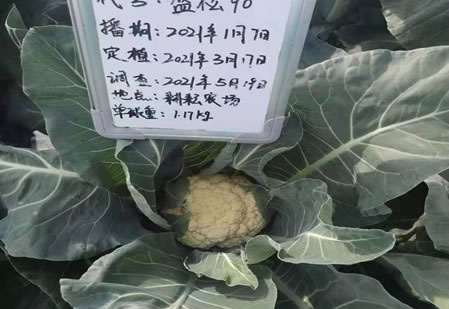 代号：盛松90
播期：2021年1月7日
定植：2021年3月17日
调查：2021年5月19日
地点：耕耘农场
单球重：1.17kg